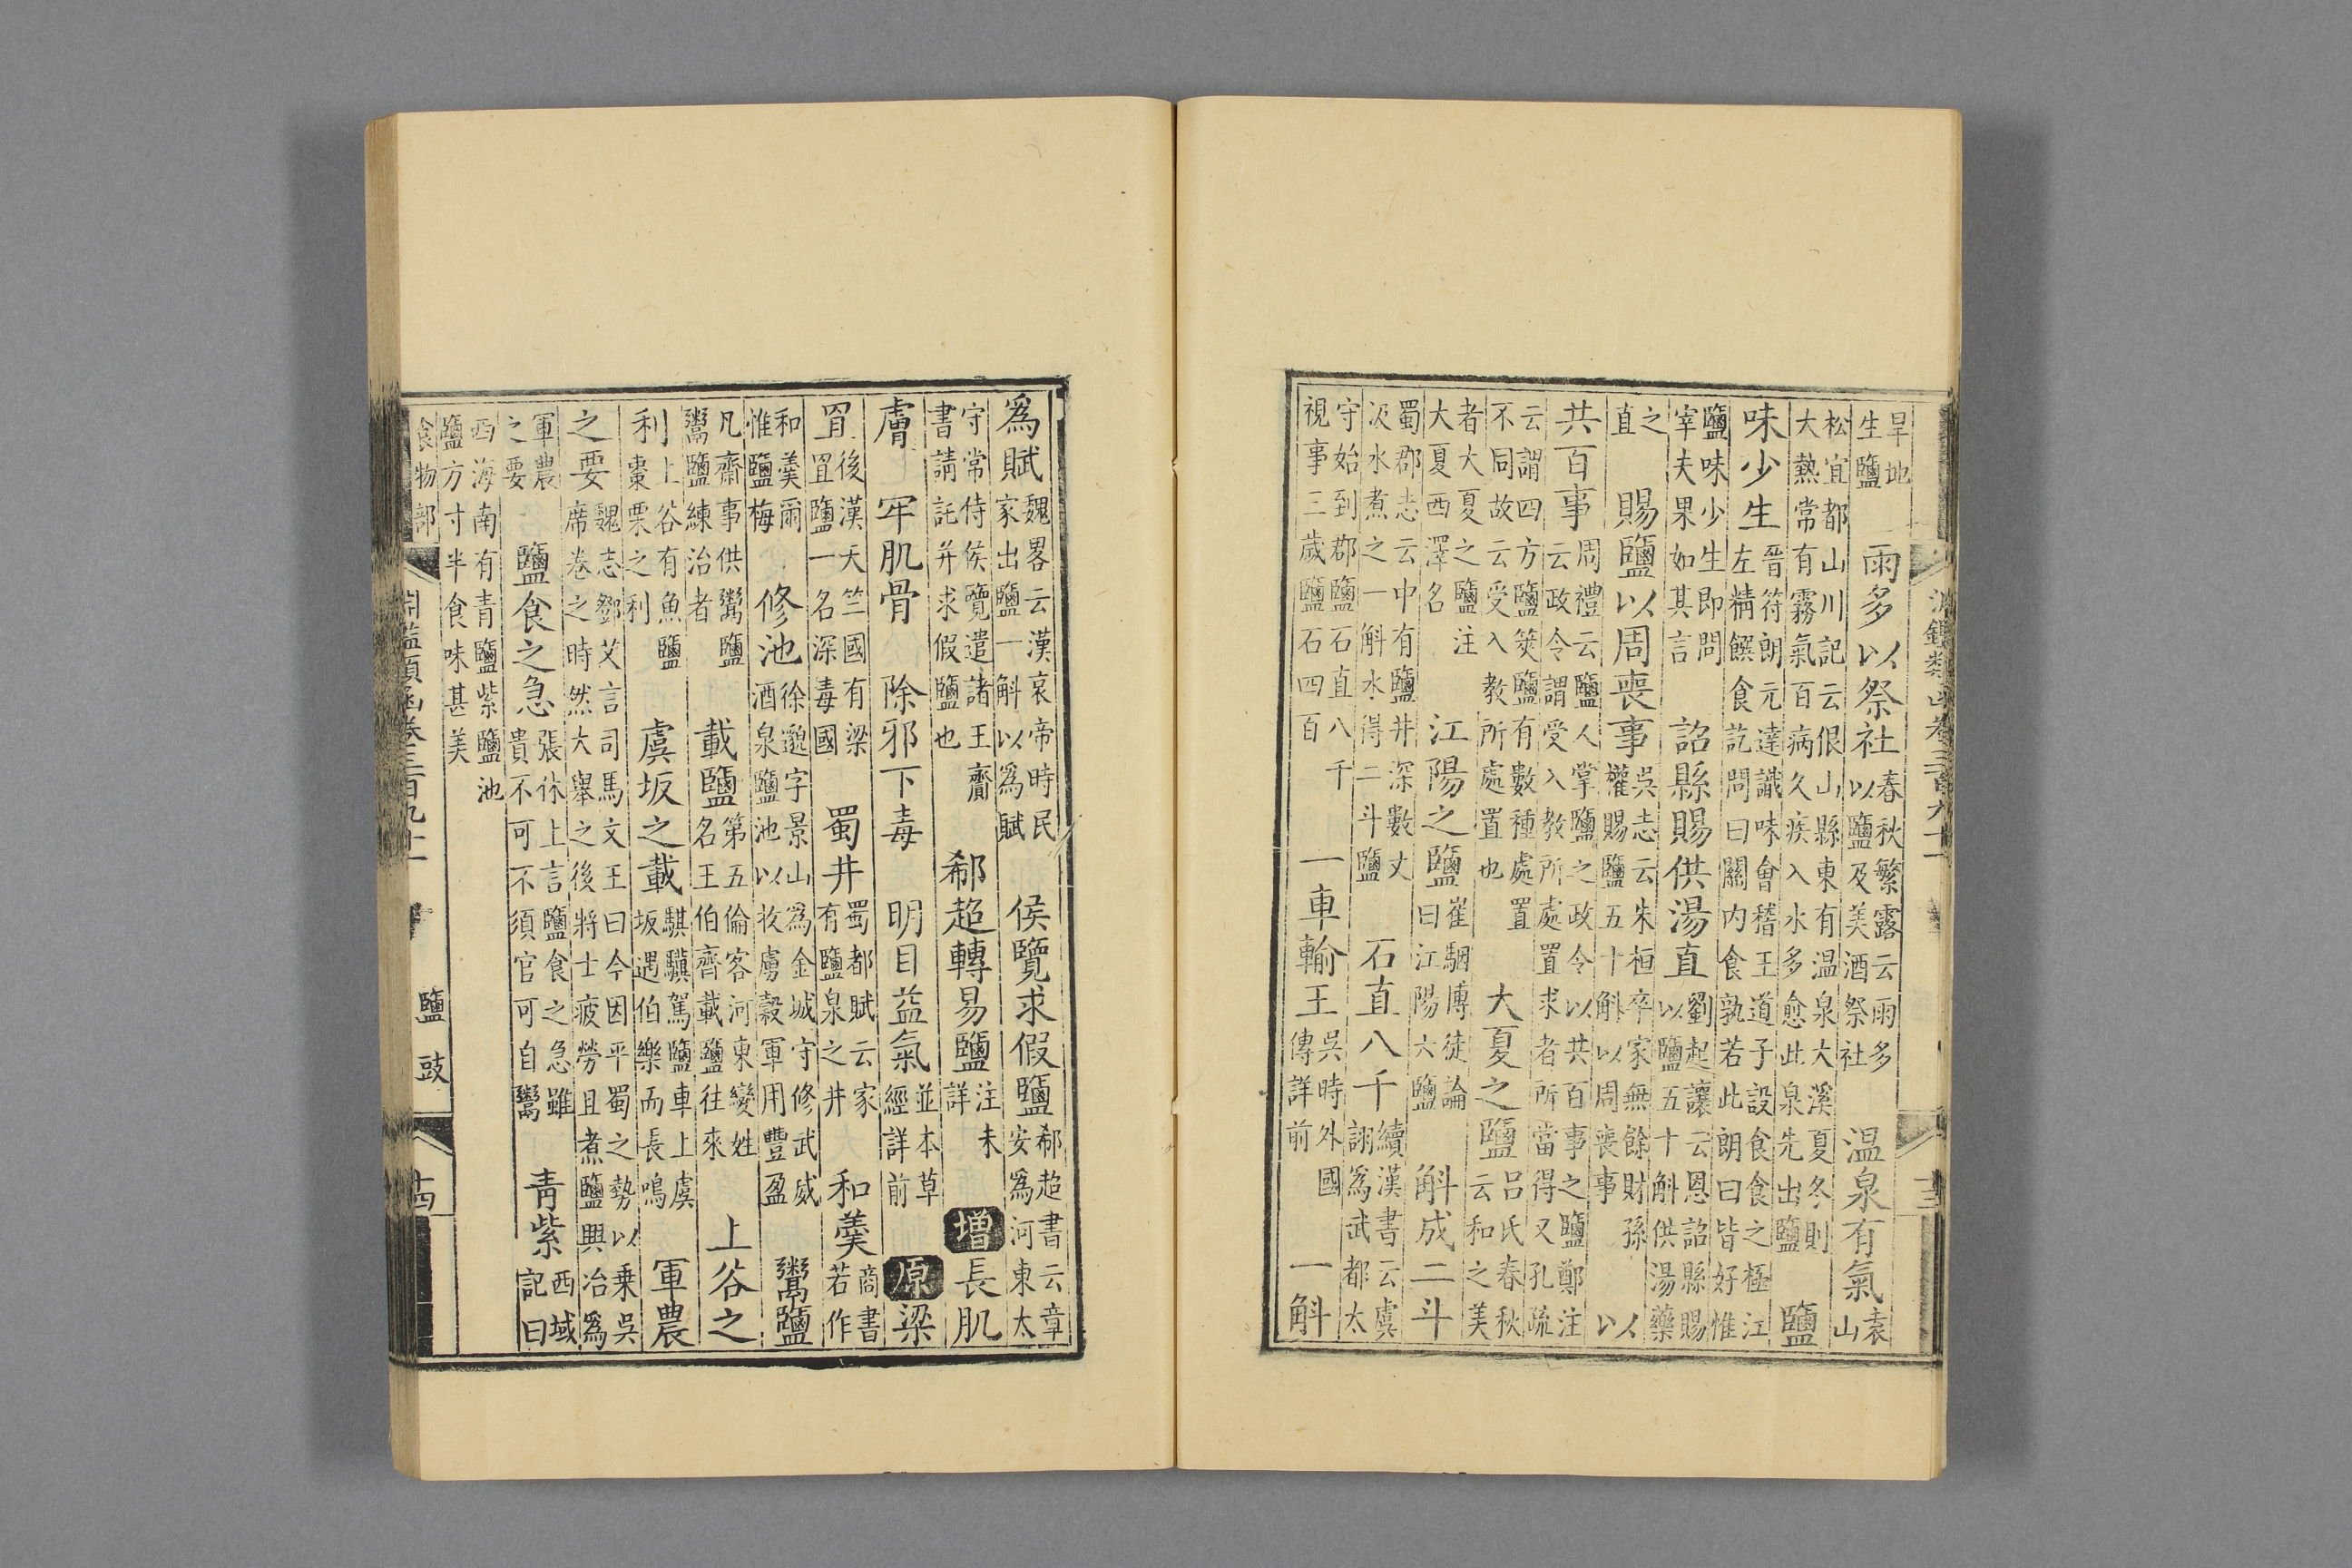 淵鑑類函卷三百九十一 十三
旱地生鹽 雨多以祭社春秋繁露云雨多以鹽及美酒祭社 温泉有氣袁山
松宜都山川記云佷山縣東有温泉大溪夏冬則大熱常有霧氣百病久疾入水多愈此泉先出鹽 鹽
味少生晉符朗元達識味會稽王道子設食食之極江左精饌食訖問曰關内食孰若此朗曰皆好惟
鹽味少生即問宰夫果如其言 詔縣賜供湯直劉起讓云恩詔縣賜以鹽五十斛供湯藥
之直 賜鹽以周喪事吳志云朱桓卒家無餘財孫權賜鹽五十斛以周喪事 以
共百事周禮云鹽人掌鹽之政令以共百事之鹽鄭注云政令謂受入教所處置求者所當得又孔疏
云謂四方鹽筴鹽有數種處置不同故云受入教所處置也 大夏之鹽呂氏春秋云和之美
者大夏之鹽注大夏西澤名 江陽之鹽崔駰博徒論曰江陽六鹽 斛成二斗
蜀郡志云中有鹽井深數丈次水煮之一斛水得二斗鹽 石直八千續漢書云虞詡為武都太
守始到郡鹽石直八千視事三歲鹽石四百 一車輸王吳時外國傳詳前 一斛
爲賦魏畧云漢哀帝時民家出鹽一斛以為賦 侯覽求假鹽郗超書云章安為河東太
守常侍侯覽遣諸王齎書請託并求假鹽也 郗超轉易鹽注未詳 增長肌
膚 牢肌骨 除邪下毒 明目益氣並本草經詳前 原梁
罝後漢天竺國有梁罝鹽一名深毒國 蜀井蜀都賦云家有鹽泉之井 和羹商書若作
和羹爾惟鹽梅 修池徐邈字景山為金城守修武威酒泉鹽池以收虜穀軍用豐盈 鬻鹽
凡齋事供鬻鹽鬻鹽練治者 載鹽第五倫客河東變姓名王伯齊載鹽往來 上谷之
利上谷有魚鹽棗栗之利 虞坂之載騏驥駕鹽車上虞坂遇伯樂而長鳴 軍農
之要魏志鄧艾言司馬文王曰今因平蜀之勢以乗吳席卷之時然大舉之後將士疲勞且煮鹽興冶為
軍農之要 鹽食之急張休上言鹽食之急雖貴不可不須官可自鬻 青紫西域記曰
西海南有青鹽紫鹽池鹽方寸半食味甚美
食物部 淵鑑類函卷三百九十一 鹽 豉 十四